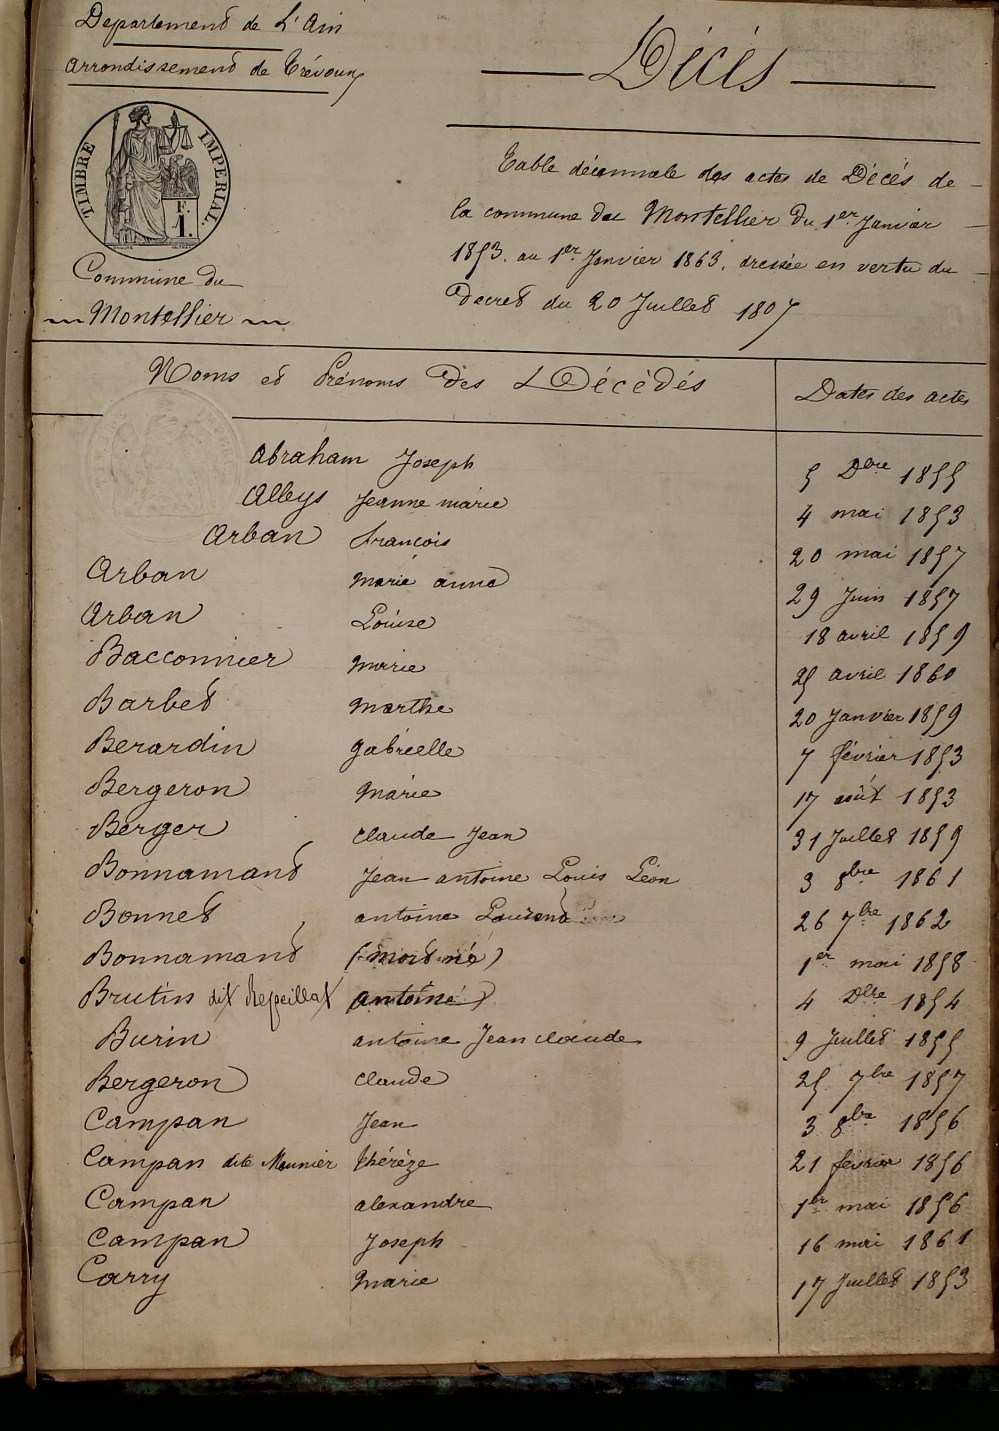 Departement de L'Ain
Arrondissement de Trévoux
Décés
TIMBRE IMPERIAL
F.
1.
Commune du
Montellier
Table décennale des actes de Décés de
la commune du Montellier du 1er Janvier
1853. au 1er Janvier 1863. dressée en vertu du
Decret du 20 Juillet 1807
Noms et Prénoms des Décédés Dates des actes
Abraham Joseph 5 Dbre 1855
Alleys Jeanne marie 4 mai 1853
Arban francois 20 mai 1857
Arban marie anne 29 Juin 1857
Arban Louise 18 avril 1859
Bacconnier marie 25 avril 1860
Barbet marthe 20 Janvier 1859
Berardin gabrielle 7 février 1853
Bergeron Marie 17 août 1853
Berger claude Jean 31 Juillet 1859
Bonnamant Jean antoine Louis Léon 3 8bre 1861
Bonnet antoine Laurent 26 7bre 1862
Bonnamant (mort né) 1er mai 1858
Brutin dit Repeillat antoine 4 Dbre 1854
Burin antoine Jean claude 9 Juillet 1855
Bergeron claude 25 7bre 1857
Campan Jean 3 8bre 1856
Campan dite Meunier thérèze 21 fevrier 1856
Campan alexandre 1er mai 1856
Campan Joseph 16 mai 1861
Carry Marie 17 Juillet 1853